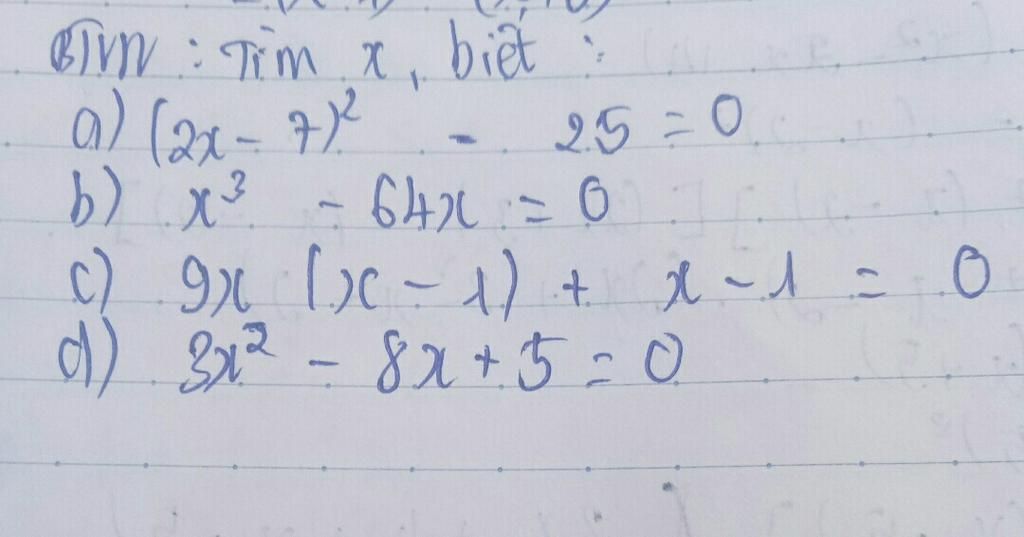 BTVN : Tìm x, biết :
a) (2x - 7)² - 25 = 0
b) x³ - 64x = 0
c) 9x (x - 1) + x - 1 = 0
d) 3x² - 8x + 5 = 0